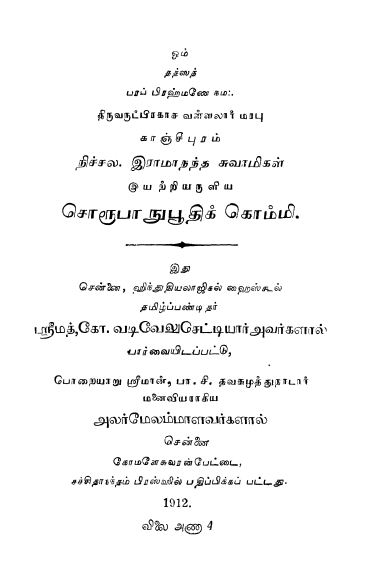 ஓம்
தத்ஸத்
பரப் பிரஹ்மணே நம:.
திருவருட்பிரகாச வள்ளலார் மரபு
காஞ்சீபுரம்
நிச்சல. இராமாநந்த சுவாமிகள்
இயற்றியருளிய
சொரூபாநுபூதிக் கொம்மி.
இது
சென்னை, ஹிந்துதியலாஜிகல் ஹைஸ்கூல்
தமிழ்ப்பண்டிதர்
ஸ்ரீமத், கோ. வடிவேலுசெட்டியாரவர்களால்
பார்வையிடப்பட்டு,
பொறையாறு ஸ்ரீமான், பா. சி. தவசுமுத்துநாடார்
மனைவியராகிய
அலர்மேலம்மாளவர்களால்
சென்னை
கோமளேசுவரன்பேட்டை,
சச்சிதாநந்தம் பிரஸ்ஸில் பதிப்பிக்கப் பட்டது.
1912.
விலை அணா 4